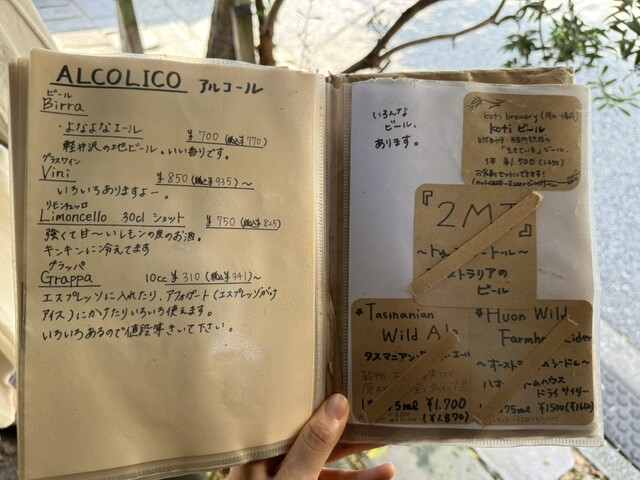 ALCOLICO アルコール
ビール
Birra
・よなよなエール ¥700 (税込¥770)
軽井沢の地ビール。いい香りです。
グラスワイン
Vini ¥850 (税込¥935)~
いろいろありますよー。
リモンチェッロ
Limoncello 30cl ショット ¥750 (税込¥825)
強くて甘〜いレモンの皮のお酒。
キンキンに冷えてます
グラッパ
Grappa 10cc ¥310 (税込¥341)~
エスプレッソに入れたり、アフォガート(エスプレッソがけ
アイス)にかけたりいろいろ使えます。
いろいろあるので値段等きいて下さい。
いろんな
ビール、
あります。
koti brewery
koti ビール
「生きている」ビール。
1本 ¥1,500
『2MT』
オーストラリアの
ビール
Tasmanian
Wild Ale
タスマニアン・
¥1.700
(¥1.870)
Huon Wild
Farmhouse Cider
ドライサイダー
75ml ¥1500 (¥1650)